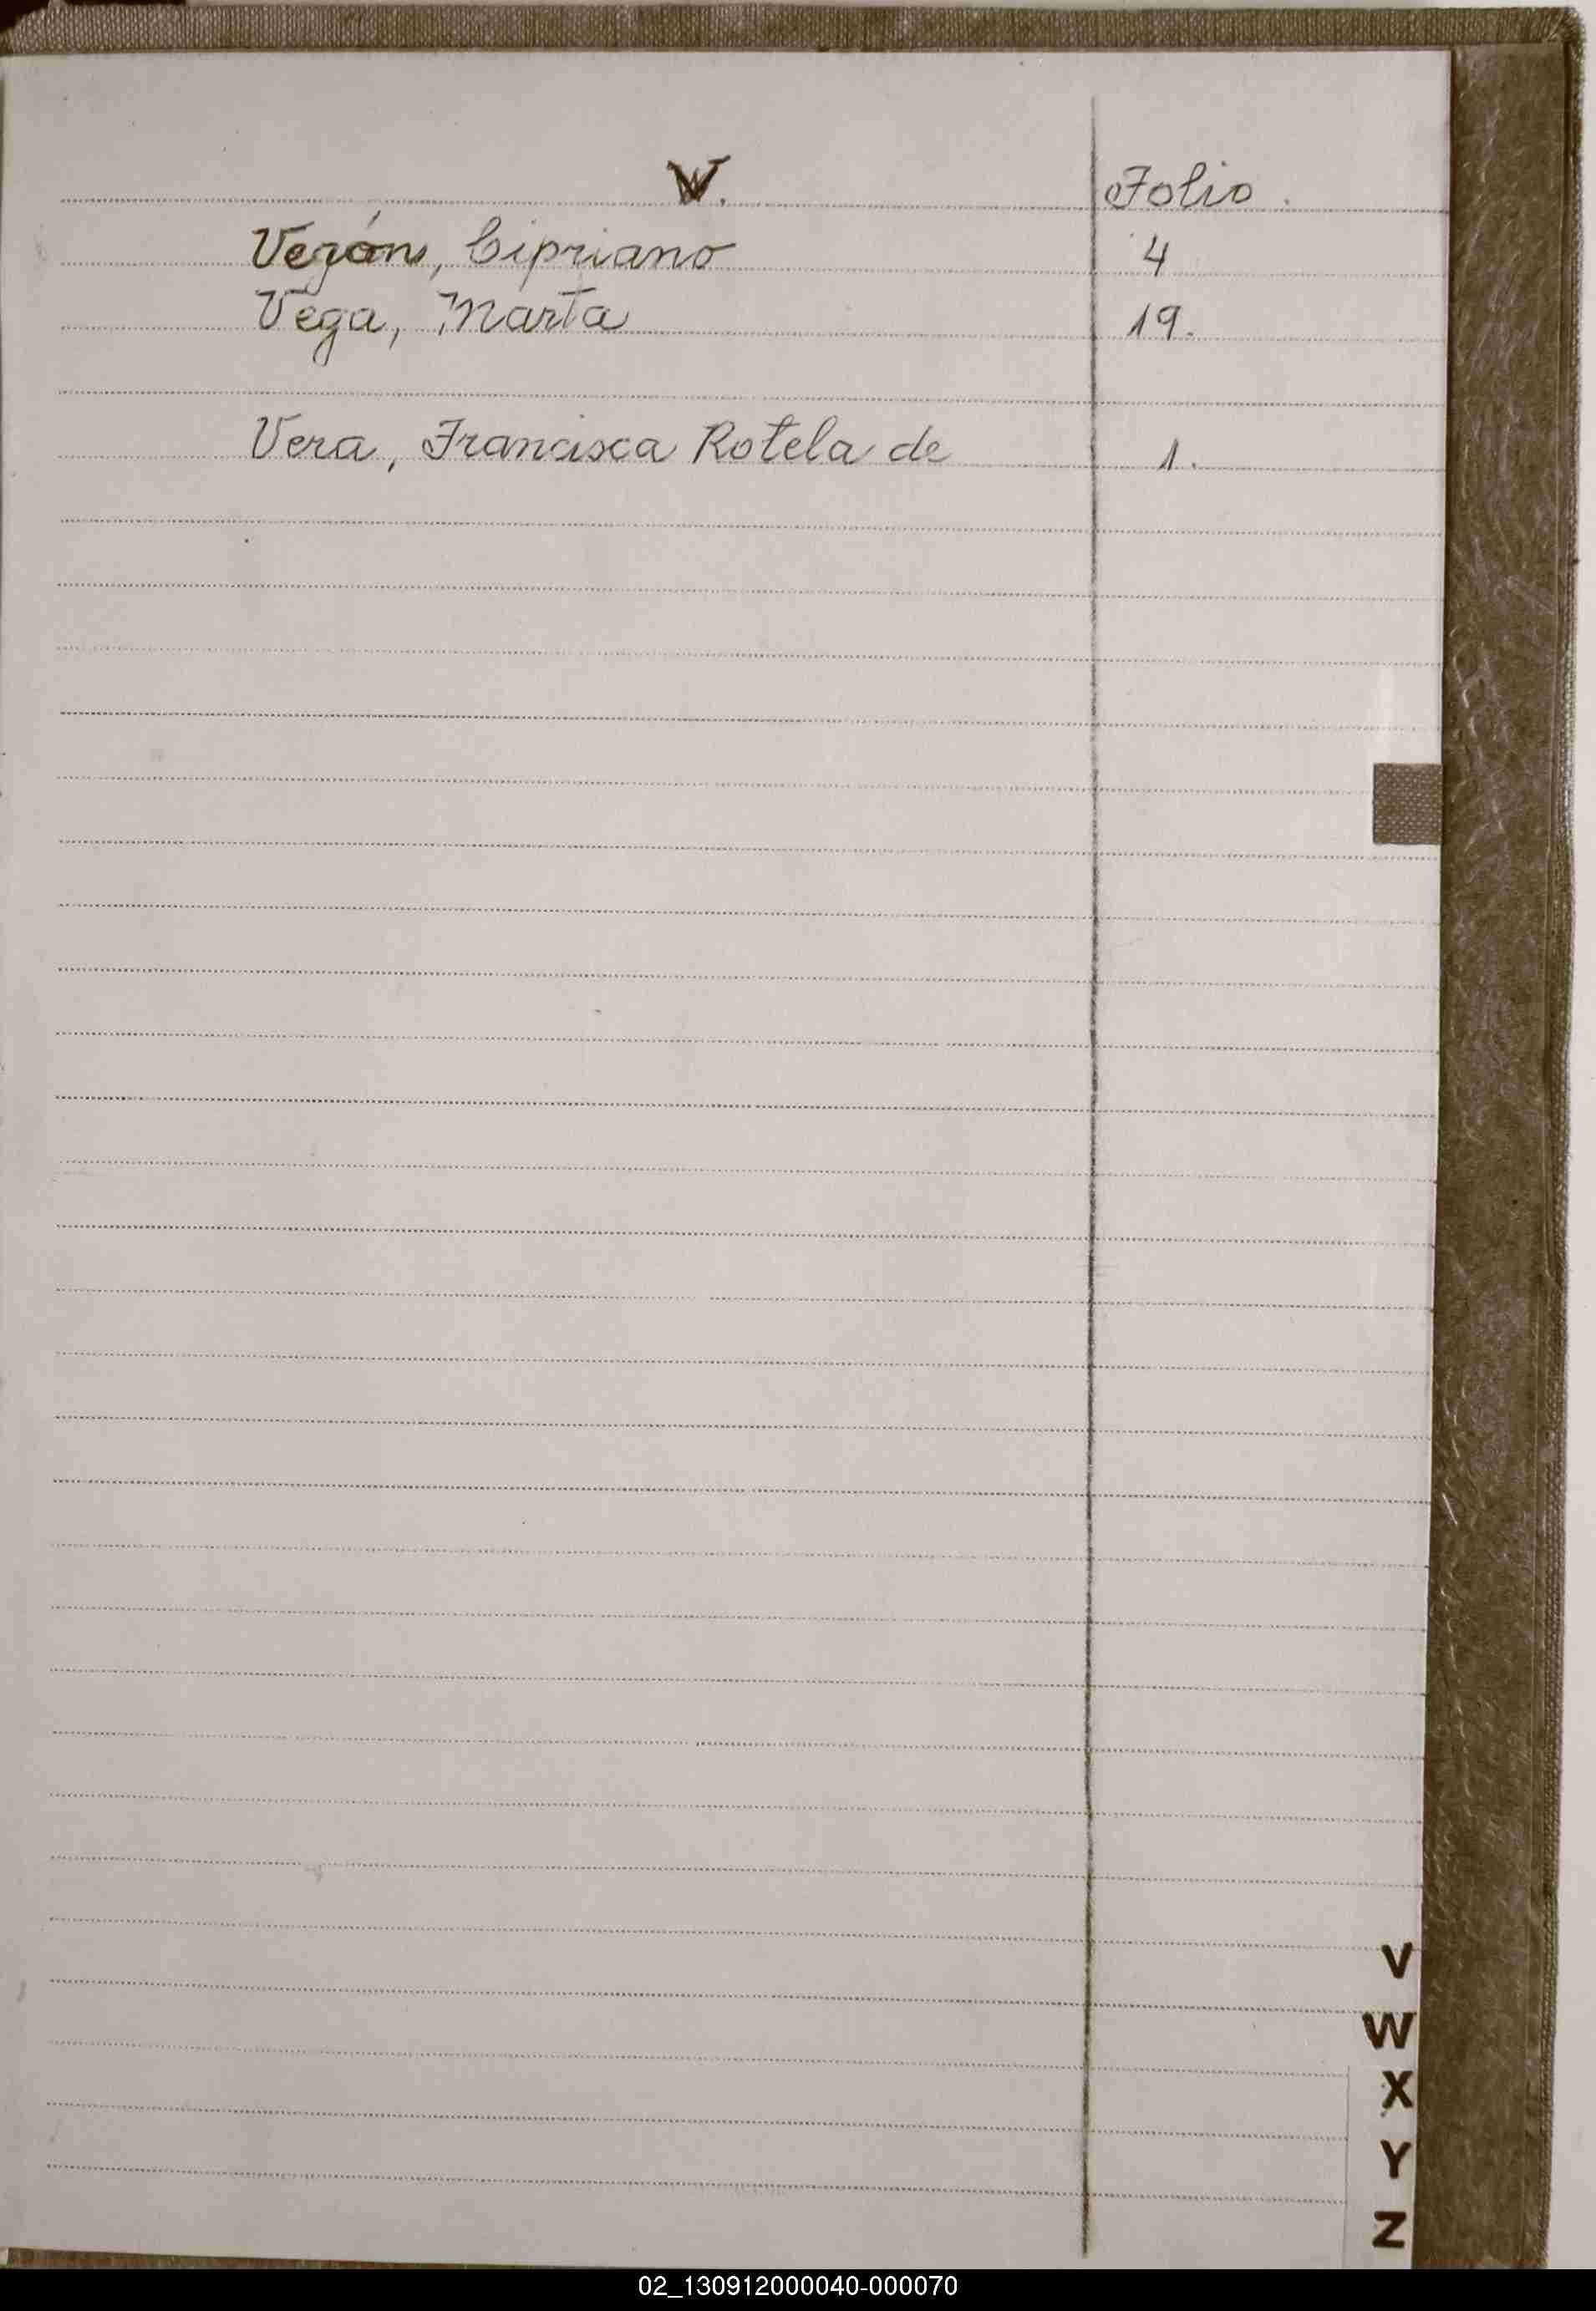 V. Folio.
Verón, Cipriano 4
Vega, Marta 19.
Vera, Francisca Rotela de 1.
V
W
X
Y
Z
02_130912000040-000070